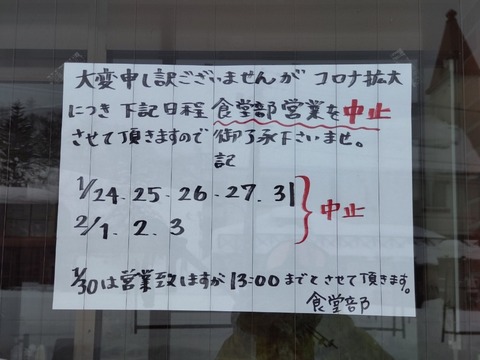 大変申し訳ございませんが コロナ拡大
につき 下記日程 食堂部営業を中止
させて頂きますので 御了承下さいませ。
記
1/24. 25. 26. 27. 31 } 中止
2/1. 2. 3
1/30は営業致しますが 13:00 までとさせて頂きます。
食堂部